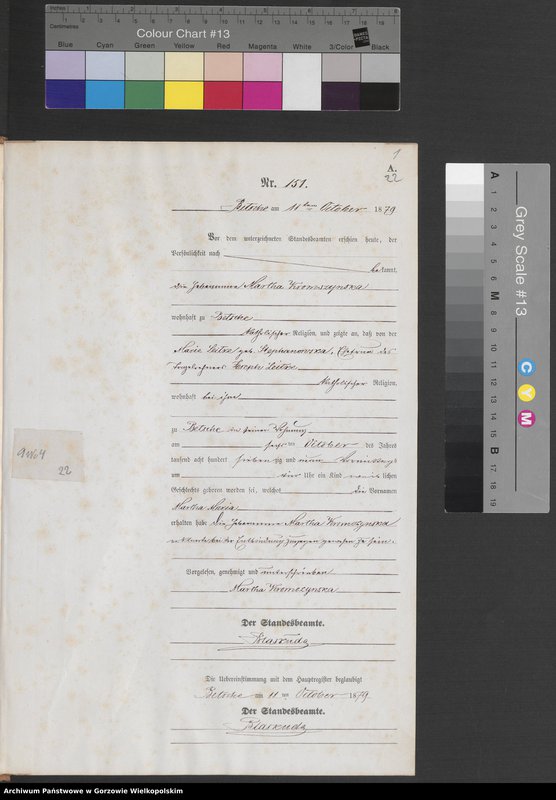 Inches
Centimetres
Colour Chart #13
Blue Cyan Green Yellow Red Magenta White 3/Color Black
1
A.
22
Nr. 151.
Betsche am 11ten October 1879
Vor dem unterzeichneten Standesbeamten erschien heute, der
Persönlichkeit nach
bekannt,
die Hebamme Martha
wohnhaft zu Betsche
katholischer Religion, und zeigte an, daß von der
Marie geb. Stephanowska, Ehefrau des
Joseph
katholischer Religion,
wohnhaft bei ihm
zu Betsche in seiner Wohnung
am sechsten October des Jahres
tausend acht hundert siebenzig und neun Vormittags
um vier Uhr ein Kind weiblichen
Geschlechts geboren worden sei, welches die Vornamen
Martha Maria
erhalten habe. Die Hebamme Martha
bei der Entbindung zugegen gewesen zu sein.
Vorgelesen, genehmigt und unterschrieben
Martha
Der Standesbeamte.
Die Uebereinstimmung mit dem Hauptregister beglaubigt
Betsche am 11ten October 1879
Der Standesbeamte.
22
Grey Scale #13
A 1 2 3 4 5 6 M 8 9 10 11 12 13 14 15 B 17 18 19
C
Y
M
Archiwum Państwowe w Gorzowie Wielkopolskim